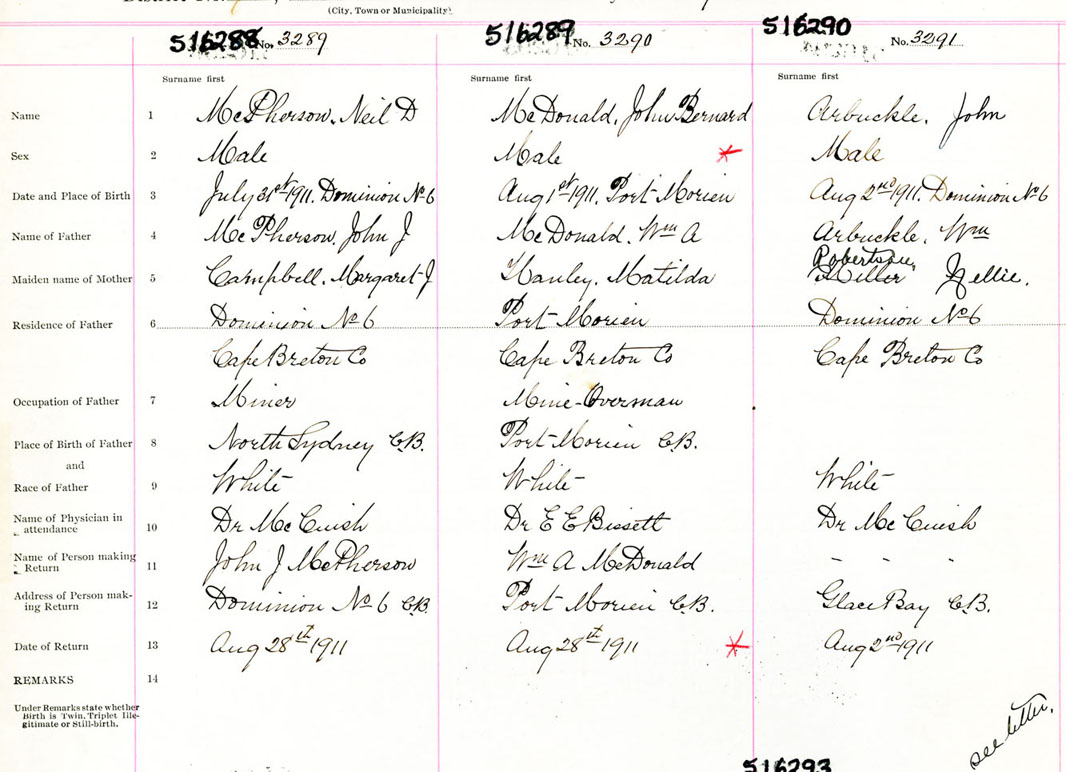 (City, Town or Municipality)
516288 No. 3289 516289 No. 3290 516290 No. 3291
Surname first Surname first Surname first
Name 1 McPherson, Neil D McDonald, John Bernard Arbuckle, John
Sex 2 Male Male Male
Date and Place of Birth 3 July 31st 1911. Dominion No 6 Aug 1st 1911. Port Morien Aug 2nd 1911. Dominion No 6
Name of Father 4 McPherson, John J McDonald, Wm A Arbuckle, Wm
Robertson,
Maiden name of Mother 5 Campbell, Margaret J Hanley, Matilda Miller Nellie.
Residence of Father 6 Dominion No 6 Port Morien Dominion No 6
Cape Breton Co Cape Breton Co Cape Breton Co
Occupation of Father 7 Miner Mine-Overman
Place of Birth of Father 8 North Sydney C.B. Port Morien C.B.
and
Race of Father 9 White White White
Name of Physician in attendance 10 Dr McCuish Dr E E Bissett Dr McCuish
Name of Person making Return 11 John J McPherson Wm A McDonald - - -
Address of Person mak-
ing Return 12 Dominion No 6 C.B. Port Morien C.B. Glace Bay C.B.
Date of Return 13 Aug 28th 1911 Aug 28th 1911 Aug 2nd 1911
REMARKS 14
Under Remarks state whether
Birth is Twin, Triplet Ille-
gitimate or Still-birth.
see letter.
516293